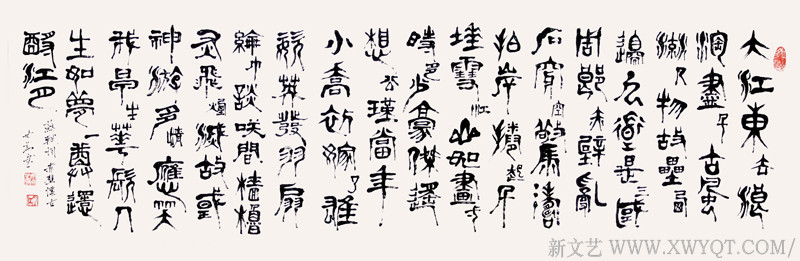 大江東去浪
淘盡千古風
流人物故壘西
邊人道是三國
周郎赤壁亂
石穿空驚濤
拍岸捲起千
堆雪江山如畫一
時多少豪傑遥
想公瑾當年
小喬初嫁了雄
姿英發羽扇
綸巾談笑間檣櫓
灰飛煙滅故國
神遊多情應笑
我早生華髮人
生如夢一尊還
酹江月
蘇軾詞赤壁懷古
新文艺 WWW.XWYQT.COM/